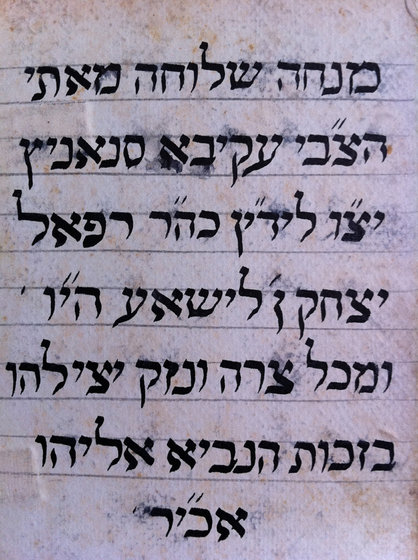 מנחה שלוחה מאתי
הצ״בי עקיבא סנאניץ
יצ״ו לידי״ץ כה״ר רפאל
יצחק ן׳ לישאע הי״ו
ומכל צרה ונזק יצילהו
בזכות הנביא אליהו
אכי״ר